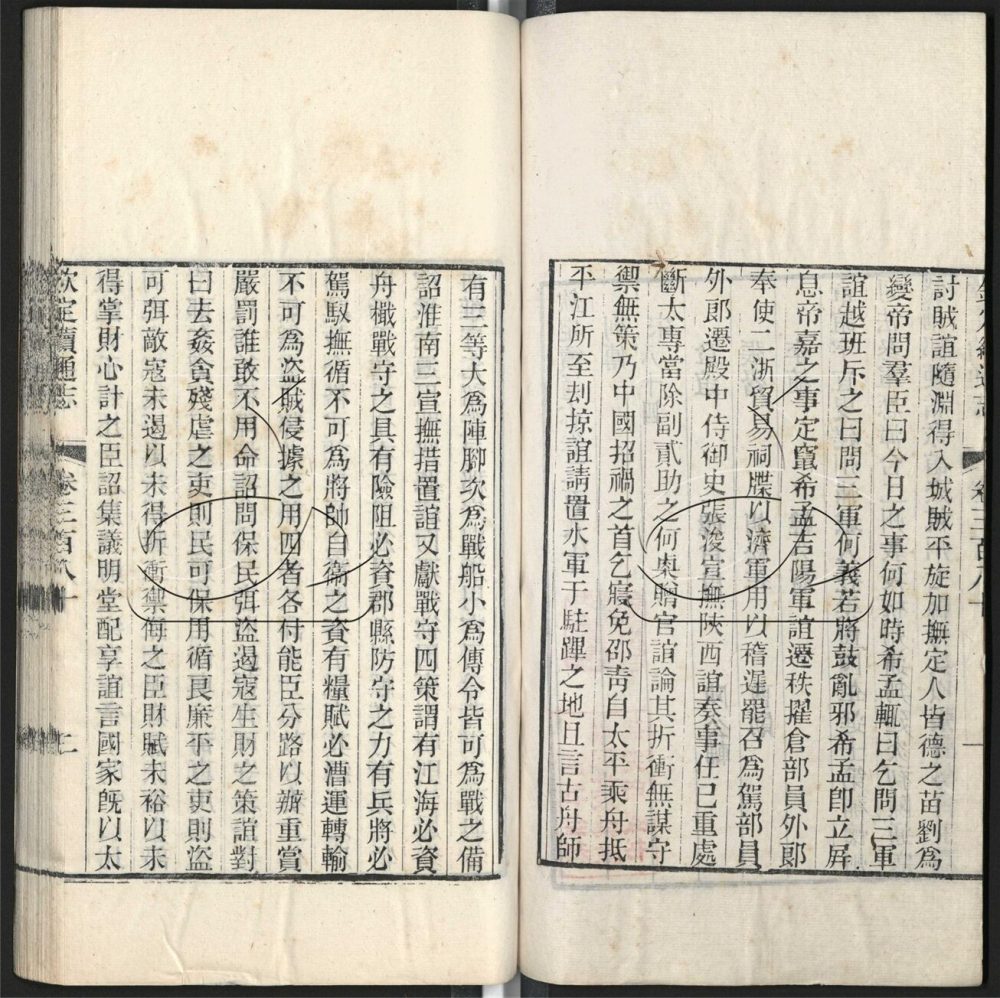 欽定續通志 卷三百八十 一
討賊誼隨淵得入城賊平旋加撫定人皆德之苗劉爲
變帝問羣臣曰今日之事何如時希孟輒曰乞問三軍
誼越班斥之曰問三軍何義若將鼓亂邪希孟卽立屏
息帝嘉之事定竄希孟吉陽軍誼遷秩擢倉部員外郎
奉使二浙貿易祠牒以濟軍用以稽遲罷召爲駕部員
外郎遷殿中侍御史張浚宣撫陜西誼奏事任已重處
斷太專當除副貳助之何㮚贈官誼論其折衝無謀守
禦無策乃中國招禍之首乞寢免邵靑自太平乘舟抵
平江所至刦掠誼請置水軍于駐蹕之地且言古舟師
有三等大爲陣腳次爲戰船小爲傳令皆可爲戰之備
詔淮南三宣撫措置誼又獻戰守四策謂有江海必資
舟檝戰守之具有險阻必資郡縣防守之力有兵將必
駕馭撫循不可爲將帥自衞之資有糧賦必漕運轉輸
不可爲盜賊侵據之用四者各付能臣分路以辦重賞
嚴罰誰敢不用命詔問保民弭盜遏寇生財之策誼對
曰去姦貪殘虐之吏則民可保用循良廉平之吏則盜
可弭敵寇未遏以未得折衝禦侮之臣財賦未裕以未
得掌財心計之臣詔集議明堂配享誼言國家旣以太
欽定續通志 卷三百八十 二